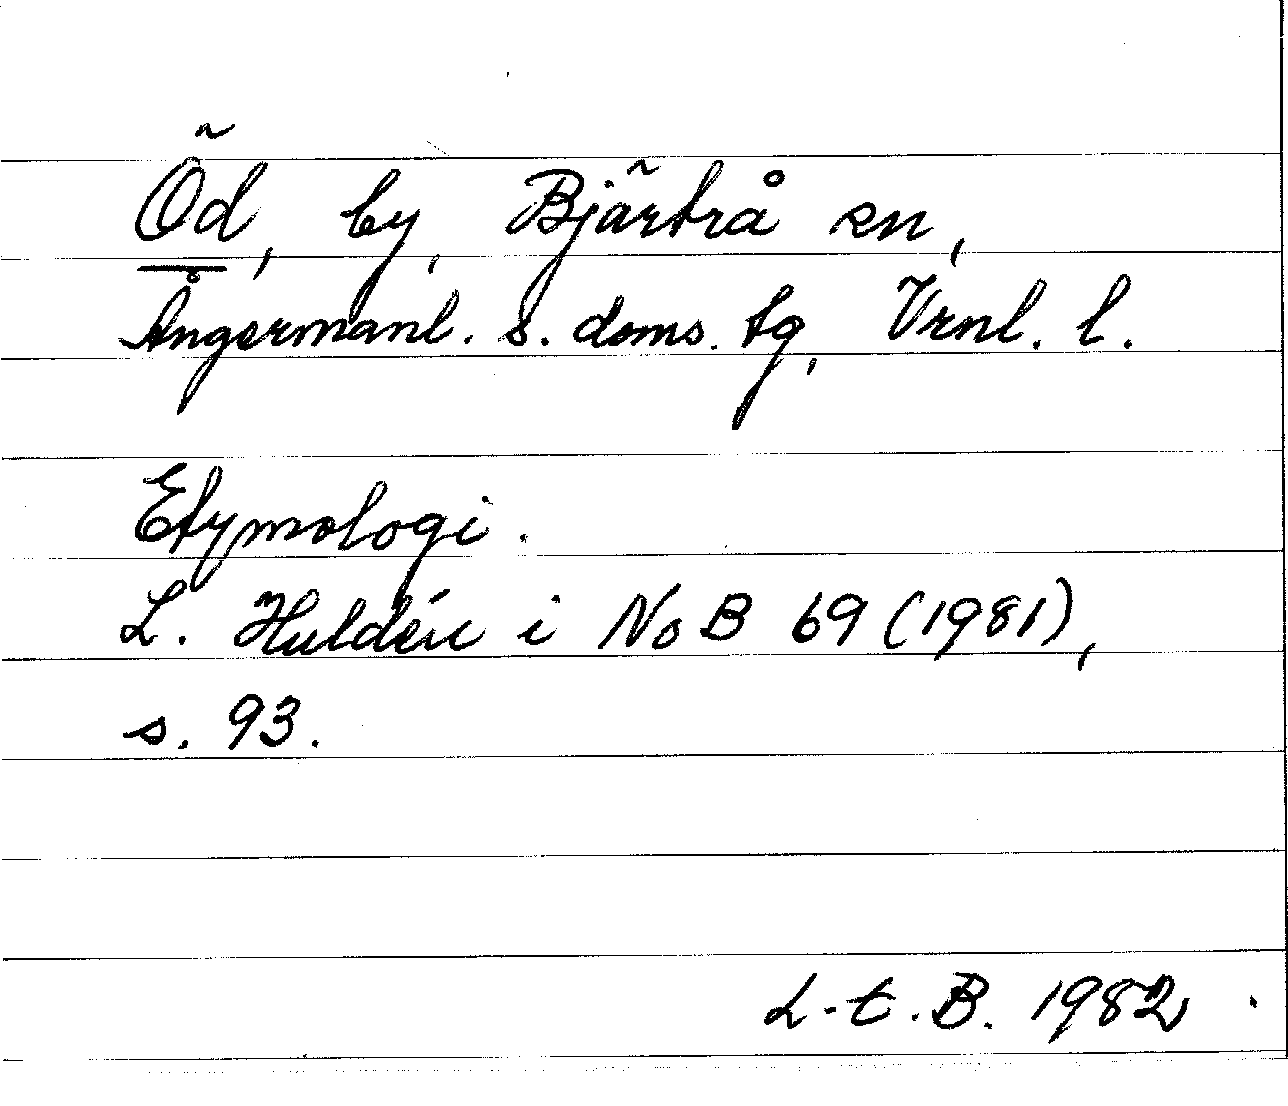 Öd, by, Bjärtrå sn,
Ångermanl. s. doms. tg, Vrnl. l.
Etymologi.
L. Huldén i NoB 69 (1981),
s. 93.
L-E. B. 1982